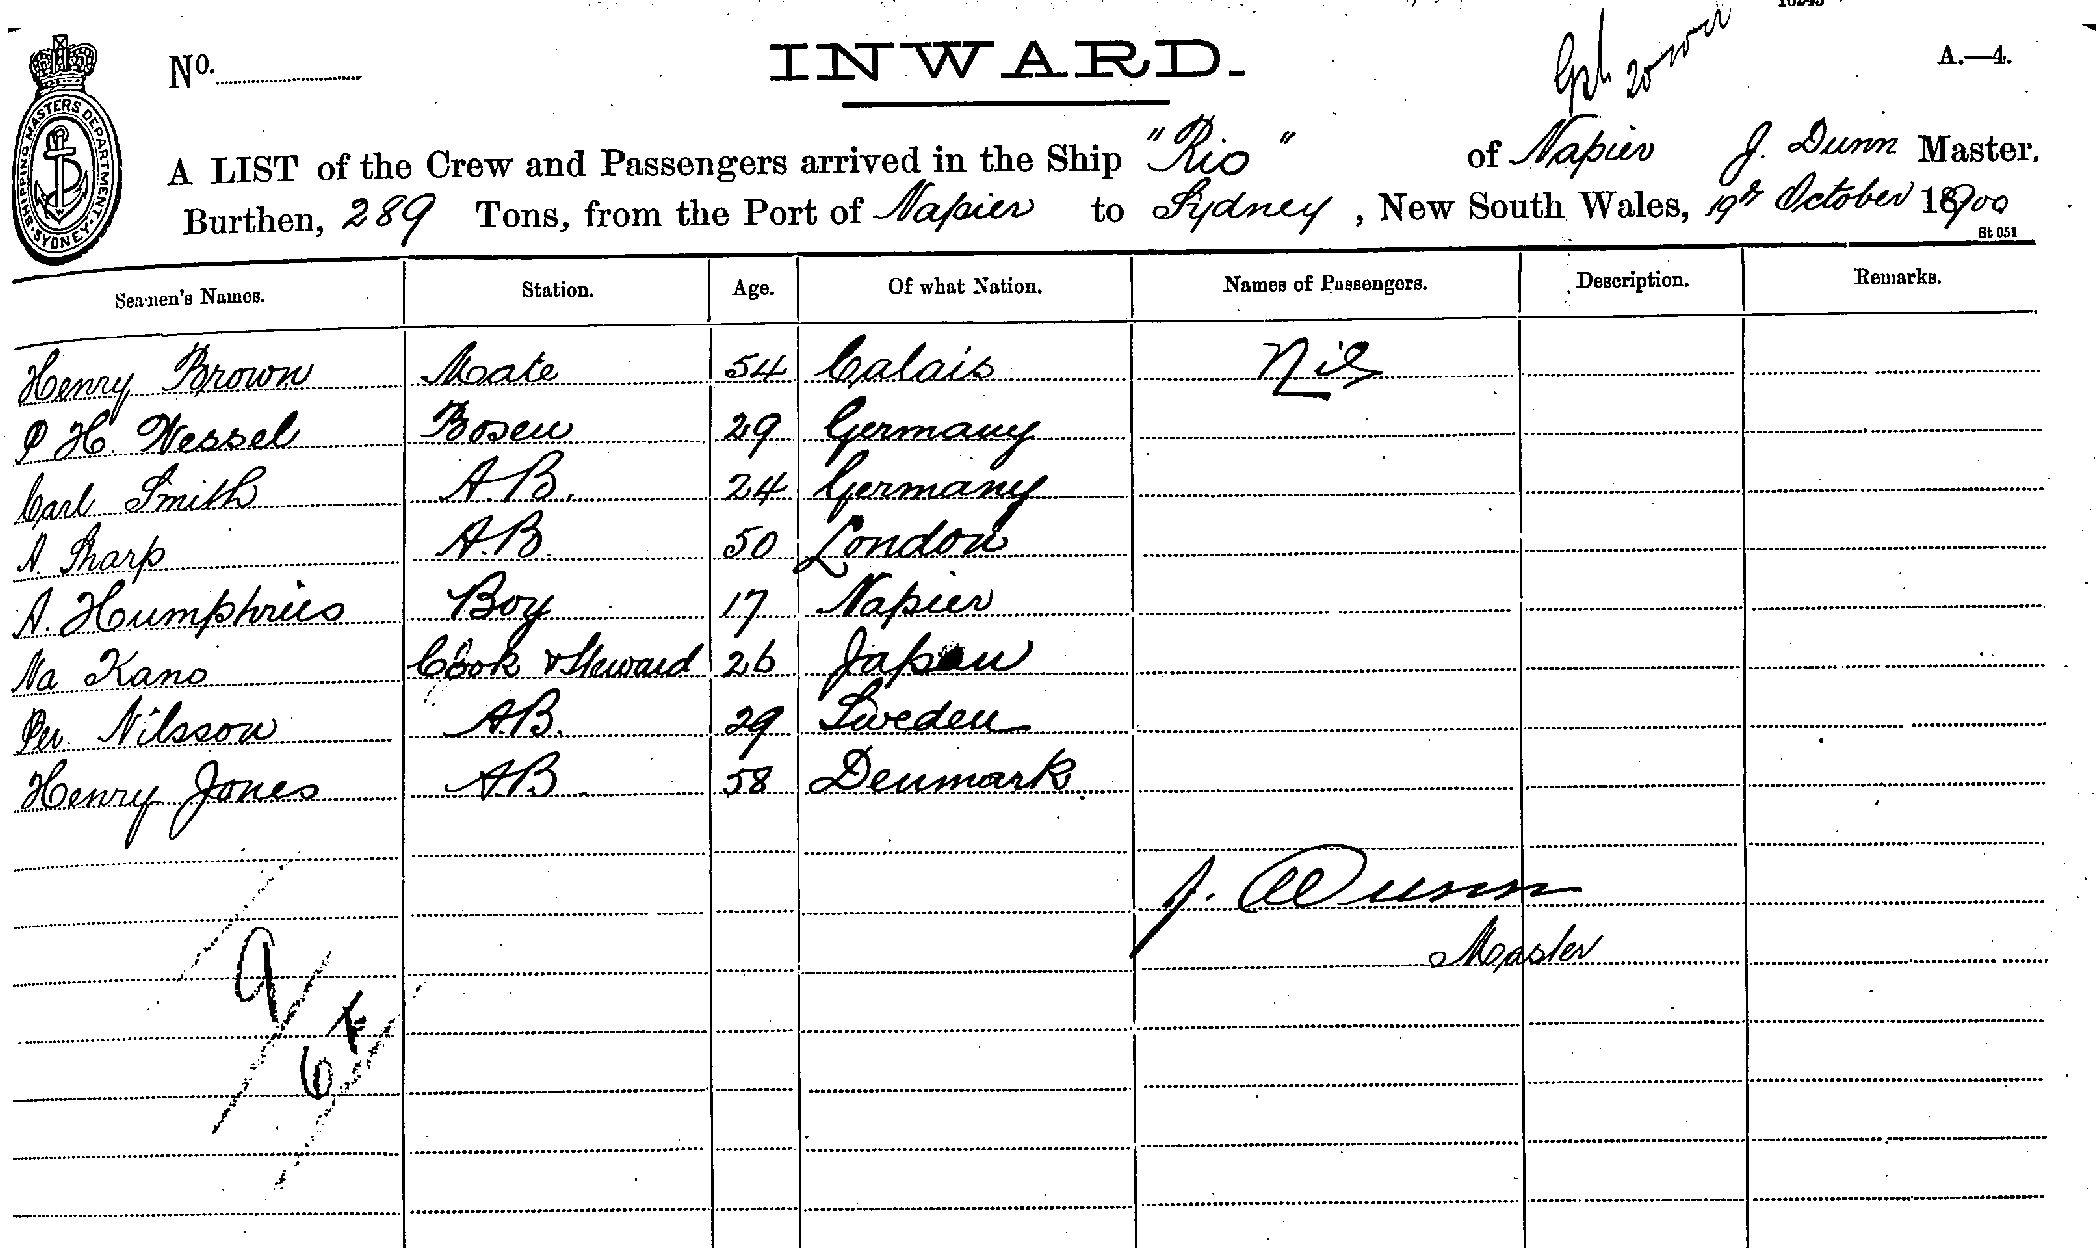 INWARD.
No.
A.—4.
SHIPPING MASTERS DEPARTMENT. SYDNEY
A LIST of the Crew and Passengers arrived in the Ship "Rio" of Napier J. Dunn Master,
Burthen, 289 Tons, from the Port of Napier to Sydney, New South Wales, 19th October 1900
St 051
Seamen's Names. Station. Age. Of what Nation. Names of Passengers. Description. Remarks.
Henry Brown Mate 54 Calais Nil
P H. Wessel Bosen 29 Germany
Carl Smith A.B. 24 Germany
A. Sharp A.B. 50 London
A. Humphries Boy 17 Napier
Na Kano Cook & Steward 26 Japan
Per Nilsson A.B. 29 Sweden
Henry Jones A.B. 58 Denmark.
J. Dunn
Master
9
6